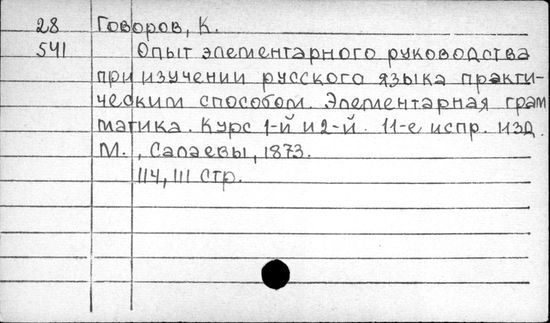 28 Говоров, К.
541 Опыт элементарного руководства
при изучении русского языка практи-
ческим способом. Элементарная грам
матика. Курс 1-й и 2-й. 11-е испр. изд.
М., Салаевы, 1873.
114, 111 стр.